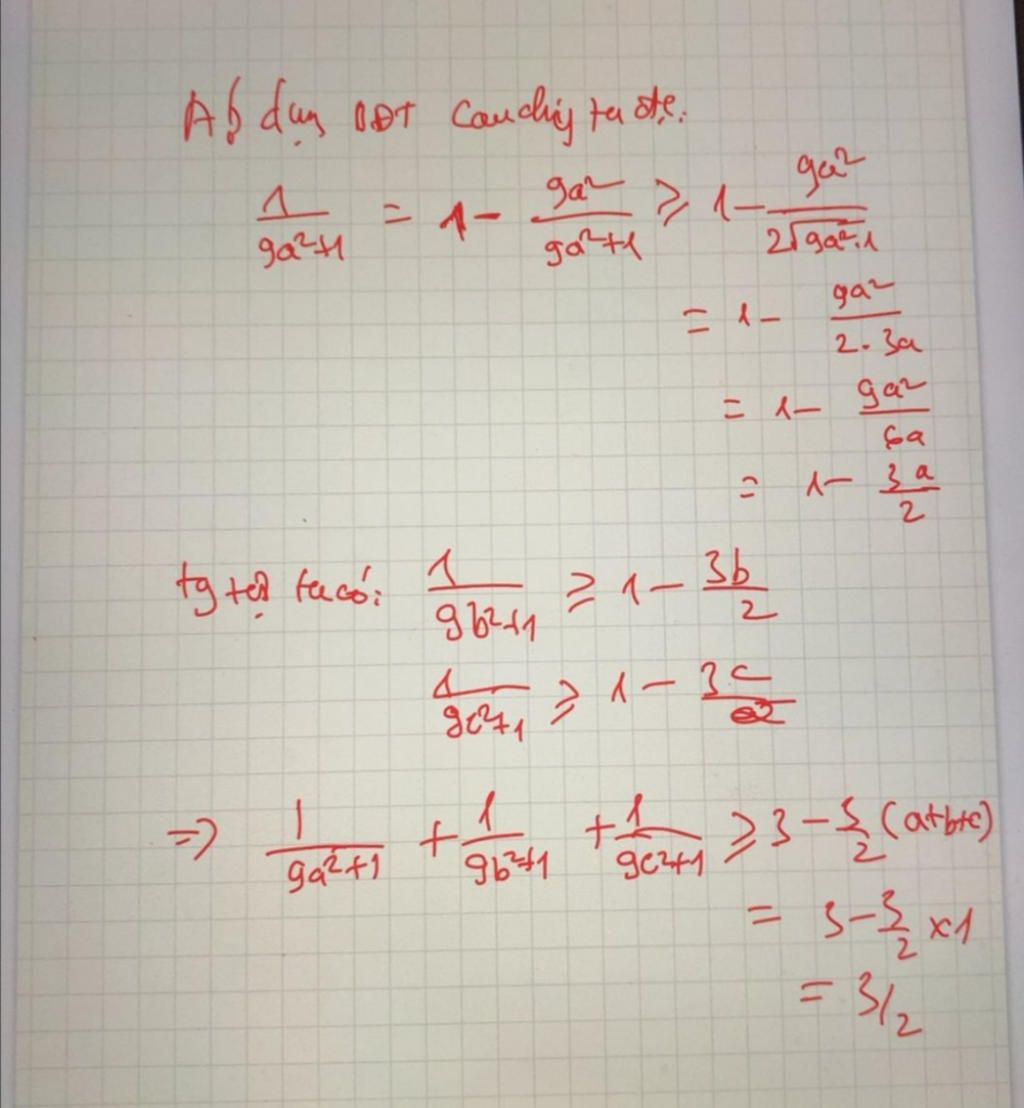 Áp dụng BĐT Cauchy ta đc:
1/(9a²+1) = 1 - 9a²/(9a²+1) ⩾ 1 - 9a²/(2√(9a².1))
= 1 - 9a²/(2.3a)
= 1 - 9a²/(6a)
= 1 - 3a/2
tg tự ta có: 1/(9b²+1) ⩾ 1 - 3b/2
1/(9c²+1) ⩾ 1 - 3c/2
=> 1/(9a²+1) + 1/(9b²+1) + 1/(9c²+1) ⩾ 3 - 3/2 (a+b+c)
= 3 - 3/2 x1
= 3/2